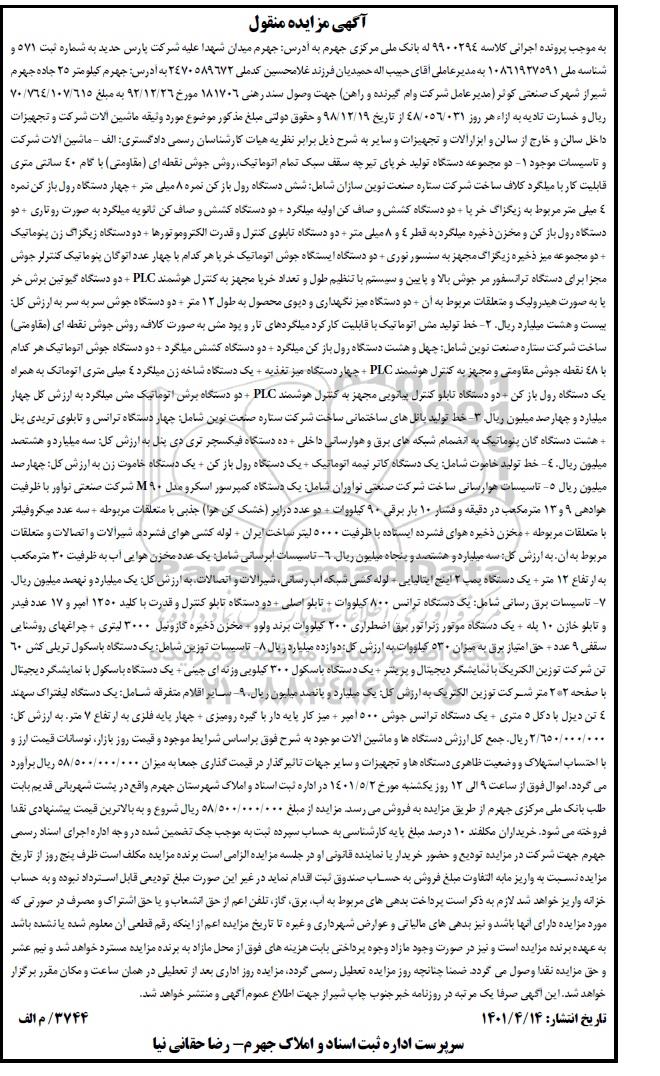 آگهی مزایده منقول
به موجب پرونده اجرائی کلاسه ۹۹۰۰۲۹۴ له بانک ملی مرکزی جهرم به آدرس: جهرم میدان شهدا علیه شرکت پارس حدید به شماره ثبت ۵۷۱ و
شناسه ملی ۱۰۸۶۱۹۲۷۵۹۱ به مدیرعاملی آقای حبیب اله حمیدیان فرزند غلامحسین کدملی ۲۴۷۰۵۸۹۶۷۲ به آدرس: جهرم کیلومتر ۲۵ جاده جهرم
شیراز شهرک صنعتی کوثر (مدیرعامل شرکت وام گیرنده و راهن) جهت وصول سند رهنی ۱۸۱۷۰۶ مورخ ۹۲/۱۲/۲۶ به مبلغ ۷۰/۷۶۴/۱۰۷/۶۱۵
ریال و خسارت تادیه به ازاء هر روز ۴۸/۰۵۶/۰۳۱ از تاریخ ۹۸/۱۲/۱۹ و حقوق دولتی مبلغ مذکور موضوع مورد وثیقه ماشین آلات شرکت و تجهیزات
داخل سالن و خارج از سالن و ابزارآلات و تجهیزات و سایر به شرح ذیل برابر نظریه هیات کارشناسان رسمی دادگستری: الف - ماشین آلات شرکت
و تاسیسات موجود ۱- دو مجموعه دستگاه تولید خرپای تیرچه سقف سبک تمام اتوماتیک، روش جوش نقطه ای (مقاومتی) با گام ۴۰ سانتی متری
قابلیت کار با میلگرد کلاف ساخت شرکت ستاره صنعت نوین سازان شامل: شش دستگاه رول باز کن نمره ۸ میلی متر + چهار دستگاه رول باز کن نمره
۴ میلی متر مربوط به زیگزاگ خرپا + دو دستگاه کشش و صاف کن اولیه میلگرد + دو دستگاه کشش و صاف کن ثانویه میلگرد به صورت روتاری + دو
دستگاه رول باز کن و مخزن ذخیره میلگرد به قطر ۴ و ۸ میلی متر + دو دستگاه تابلوی کنترل و قدرت الکتروموتورها + دو دستگاه زیگزاگ زن پنوماتیک
+ دو مجموعه میز ذخیره زیگزاگ مجهز به سنسور نوری + دو دستگاه ایستگاه جوش اتوماتیک خرپا هر کدام با چهار عدد اتوگان پنوماتیک کنترلر جوش
مجزا برای دستگاه ترانسفور مر جوش بالا و پایین و سیستم با تنظیم طول و تعداد خرپا مجهز به کنترل هوشمند PLC + دو دستگاه گیوتین برش خر
پا به صورت هیدرولیک و متعلقات مربوط به آن + دو دستگاه میز نگهداری و دپوی محصول به طول ۱۲ متر + دو دستگاه جوش سر به سر به ارزش کل:
بیست و هشت میلیارد ریال. ۲- خط تولید مش اتوماتیک با قابلیت کارکرد میلگردهای تار و پود مش به صورت کلاف، روش جوش نقطه ای (مقاومتی)
ساخت شرکت ستاره صنعت نوین شامل: چهل و هشت دستگاه رول باز کن میلگرد + دو دستگاه کشش میلگرد + دو دستگاه جوش اتوماتیک هر کدام
با ۴۸ نقطه جوش مقاومتی و مجهز به کنترل هوشمند PLC + چهار دستگاه میز تغذیه + یک دستگاه شاخه زن میلگرد ۴ میلی متری اتوماتک به همراه
یک دستگاه رول باز کن + دو دستگاه تابلو کنترل پیانویی مجهز به کنترل هوشمند PLC + دو دستگاه برش اتوماتیک مش میلگرد به ارزش کل چهار
میلیارد و چهار صد میلیون ریال. ۳- خط تولید پانل های ساختمانی ساخت شرکت ستاره صنعت نوین شامل: چهار دستگاه ترانس و تابلوی تریدی پنل
+ هشت دستگاه گان پنوماتیک به انضمام شبکه های برق و هوارسانی داخلی + ده دستگاه فیکسچر تری دی پنل به ارزش کل: سه میلیارد و هشتصد
میلیون ریال. ۴- خط تولید خاموت شامل: یک دستگاه کاتر نیمه اتوماتیک + یک دستگاه رول باز کن + یک دستگاه خاموت زن به ارزش کل: چهارصد
میلیون ریال ۵- تاسیسات هوارسانی ساخت شرکت صنعتی نوآوران شامل: یک دستگاه کمپرسور اسکرو مدل M۹۰ شرکت صنعتی نوآور با ظرفیت
هوادهی ۹ و ۱۳ مترمکعب در دقیقه و فشار ۱۰ بار برقی ۹۰ کیلووات + دو عدد درایر (خشک کن هوا) جذبی با متعلقات مربوطه + سه عدد میکروفیلتر
با متعلقات مربوطه + مخزن ذخیره هوای فشرده ایستاده با ظرفیت ۵۰۰۰ لیتر ساخت ایران + لوله کشی هوای فشرده، شیرآلات و اتصالات و متعلقات
مربوط به آن. به ارزش کل: سه میلیارد و هشتصد و پنجاه میلیون ریال. ۶- تاسیسات آبرسانی شامل: یک عدد مخزن هوایی آب به ظرفیت ۳۰ مترمکعب
به ارتفاع ۱۲ متر + یک دستگاه پمپ ۲ اینچ ایتالیایی + لوله کشی شبکه آب رسانی، شیرآلات و اتصالات. به ارزش کل: یک میلیارد و نهصد میلیون ریال.
۷- تاسیسات برق رسانی شامل: یک دستگاه ترانس ۸۰۰ کیلووات + تابلو اصلی + دو دستگاه تابلو کنترل و قدرت با کلید ۱۲۵۰ آمپر و ۱۷ عدد فیدر
و تابلو خازن ۱۰ پله + یک دستگاه موتور ژنراتور برق اضطراری ۲۰۰ کیلووات برند ولوو + مخزن ذخیره گازوئیل ۳۰۰۰ لیتری + چراغهای روشنایی
سقفی ۹ عدد + حق امتیاز برق به میزان ۵۳۰ کیلووات به ارزش کل: دوازده میلیارد ریال ۸- تاسیسات توزین شامل: یک دستگاه باسکول تریلی کش ۶۰
تن شرکت توزین الکتریک با نمایشگر دیجیتال و پرینتر + یک دستگاه باسکول ۳۰۰ کیلویی وزنه ای چینی + یک دستگاه باسکول با نمایشگر دیجیتال
با صفحه ۲*۲ متر شرکت توزین الکتریک به ارزش کل: یک میلیارد و پانصد میلیون ریال. ۹- سایر اقلام متفرقه شامل: یک دستگاه لیفتراک سهند
۴ تن دیزل با دکل ۵ متری + یک دستگاه ترانس جوش ۵۰۰ آمپر + میز کار پایه دار با گیره رومیزی + چهار پایه فلزی به ارتفاع ۷ متر. به ارزش کل:
۲/۶۵۰/۰۰۰/۰۰۰ ریال. جمع کل ارزش دستگاه ها و ماشین آلات موجود به شرح فوق براساس شرایط موجود و قیمت روز بازار، نوسانات قیمت ارز و
با احتساب استهلاک و وضعیت ظاهری دستگاه ها و تجهیزات و سایر جهات تاثیرگذار در قیمت گذاری جمعا به میزان ۵۸/۵۰۰/۰۰۰/۰۰۰ ریال برآورد
می گردد. اموال فوق از ساعت ۹ الی ۱۲ روز یکشنبه مورخ ۱۴۰۱/۵/۲ در اداره ثبت اسناد و املاک شهرستان جهرم واقع در پشت شهربانی قدیم بابت
طلب بانک ملی مرکزی جهرم از طریق مزایده به فروش می رسد. مزایده از مبلغ ۵۸/۵۰۰/۰۰۰/۰۰۰ ریال شروع و به بالاترین قیمت پیشنهادی نقدا
فروخته می شود. خریداران مکلفند ۱۰ درصد مبلغ پایه کارشناسی به حساب سپرده ثبت به موجب چک تضمین شده در وجه اداره اجرای اسناد رسمی
جهرم جهت شرکت در مزایده تودیع و حضور خریدار یا نماینده قانونی او در جلسه مزایده الزامی است برنده مزایده مکلف است ظرف پنج روز از تاریخ
مزایده نسبت به واریز مابه التفاوت مبلغ فروش به حساب صندوق ثبت اقدام نماید در غیر این صورت مبلغ تودیعی قابل استرداد نبوده و به حساب
خزانه واریز خواهد شد لازم به ذکر است پرداخت بدهی های مربوط به آب، برق، گاز، تلفن اعم از حق انشعاب و یا حق اشتراک و مصرف در صورتی که
مورد مزایده دارای آنها باشد و نیز بدهی های مالیاتی و عوارض شهرداری و غیره تا تاریخ مزایده اعم از اینکه رقم قطعی آن معلوم شده یا نشده باشد
به عهده برنده مزایده است و نیز در صورت وجود مازاد وجوه پرداختی بابت هزینه های فوق از محل مازاد به برنده مزایده مسترد خواهد شد و نیم عشر
و حق مزایده نقدا وصول می گردد. ضمنا چنانچه روز مزایده تعطیل رسمی گردد، مزایده روز اداری بعد از تعطیلی در همان ساعت و مکان مقرر برگزار
خواهد شد. این آگهی صرفا یک مرتبه در روزنامه خبر جنوب چاپ شیراز جهت اطلاع عموم آگهی و منتشر خواهد شد.
تاریخ انتشار: ۱۴۰۱/۴/۱۴
۳۷۴۴/ م الف
سرپرست اداره ثبت اسناد و املاک جهرم- رضا حقانی نیا
ParsNamadData